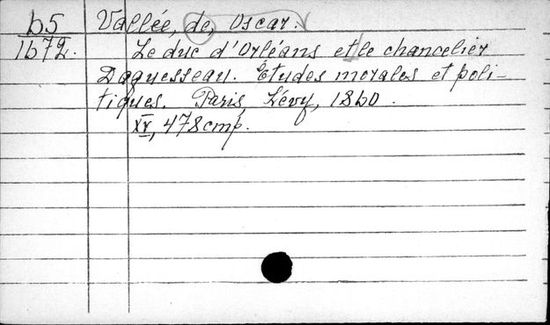 65 Vallée, de, Oscar.
1672. Le duc d'Orléans et le chancelier
Daguesseau. Études morales et poli-
tiques. Paris, Lévy, 1860.
XV, 478 стр.